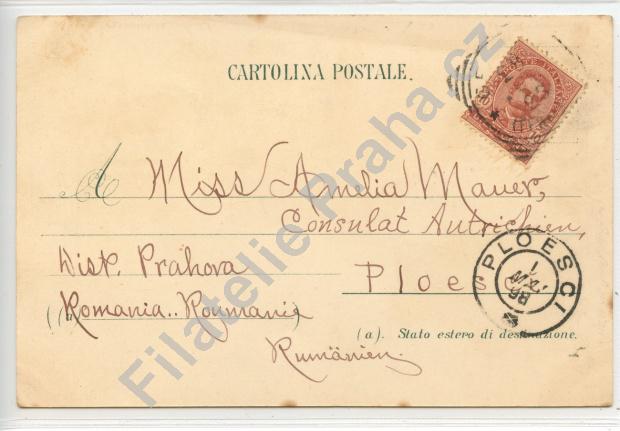 CARTOLINA POSTALE.
A Miss Amelia Mauer,
Consulat Autrichien,
Dist. Prahova
Ploesci
Romania.. Roumanie
(a). Stato estero di destinazione.
Rumänien.
PLOESCI
98
Filatelie Praha.cz